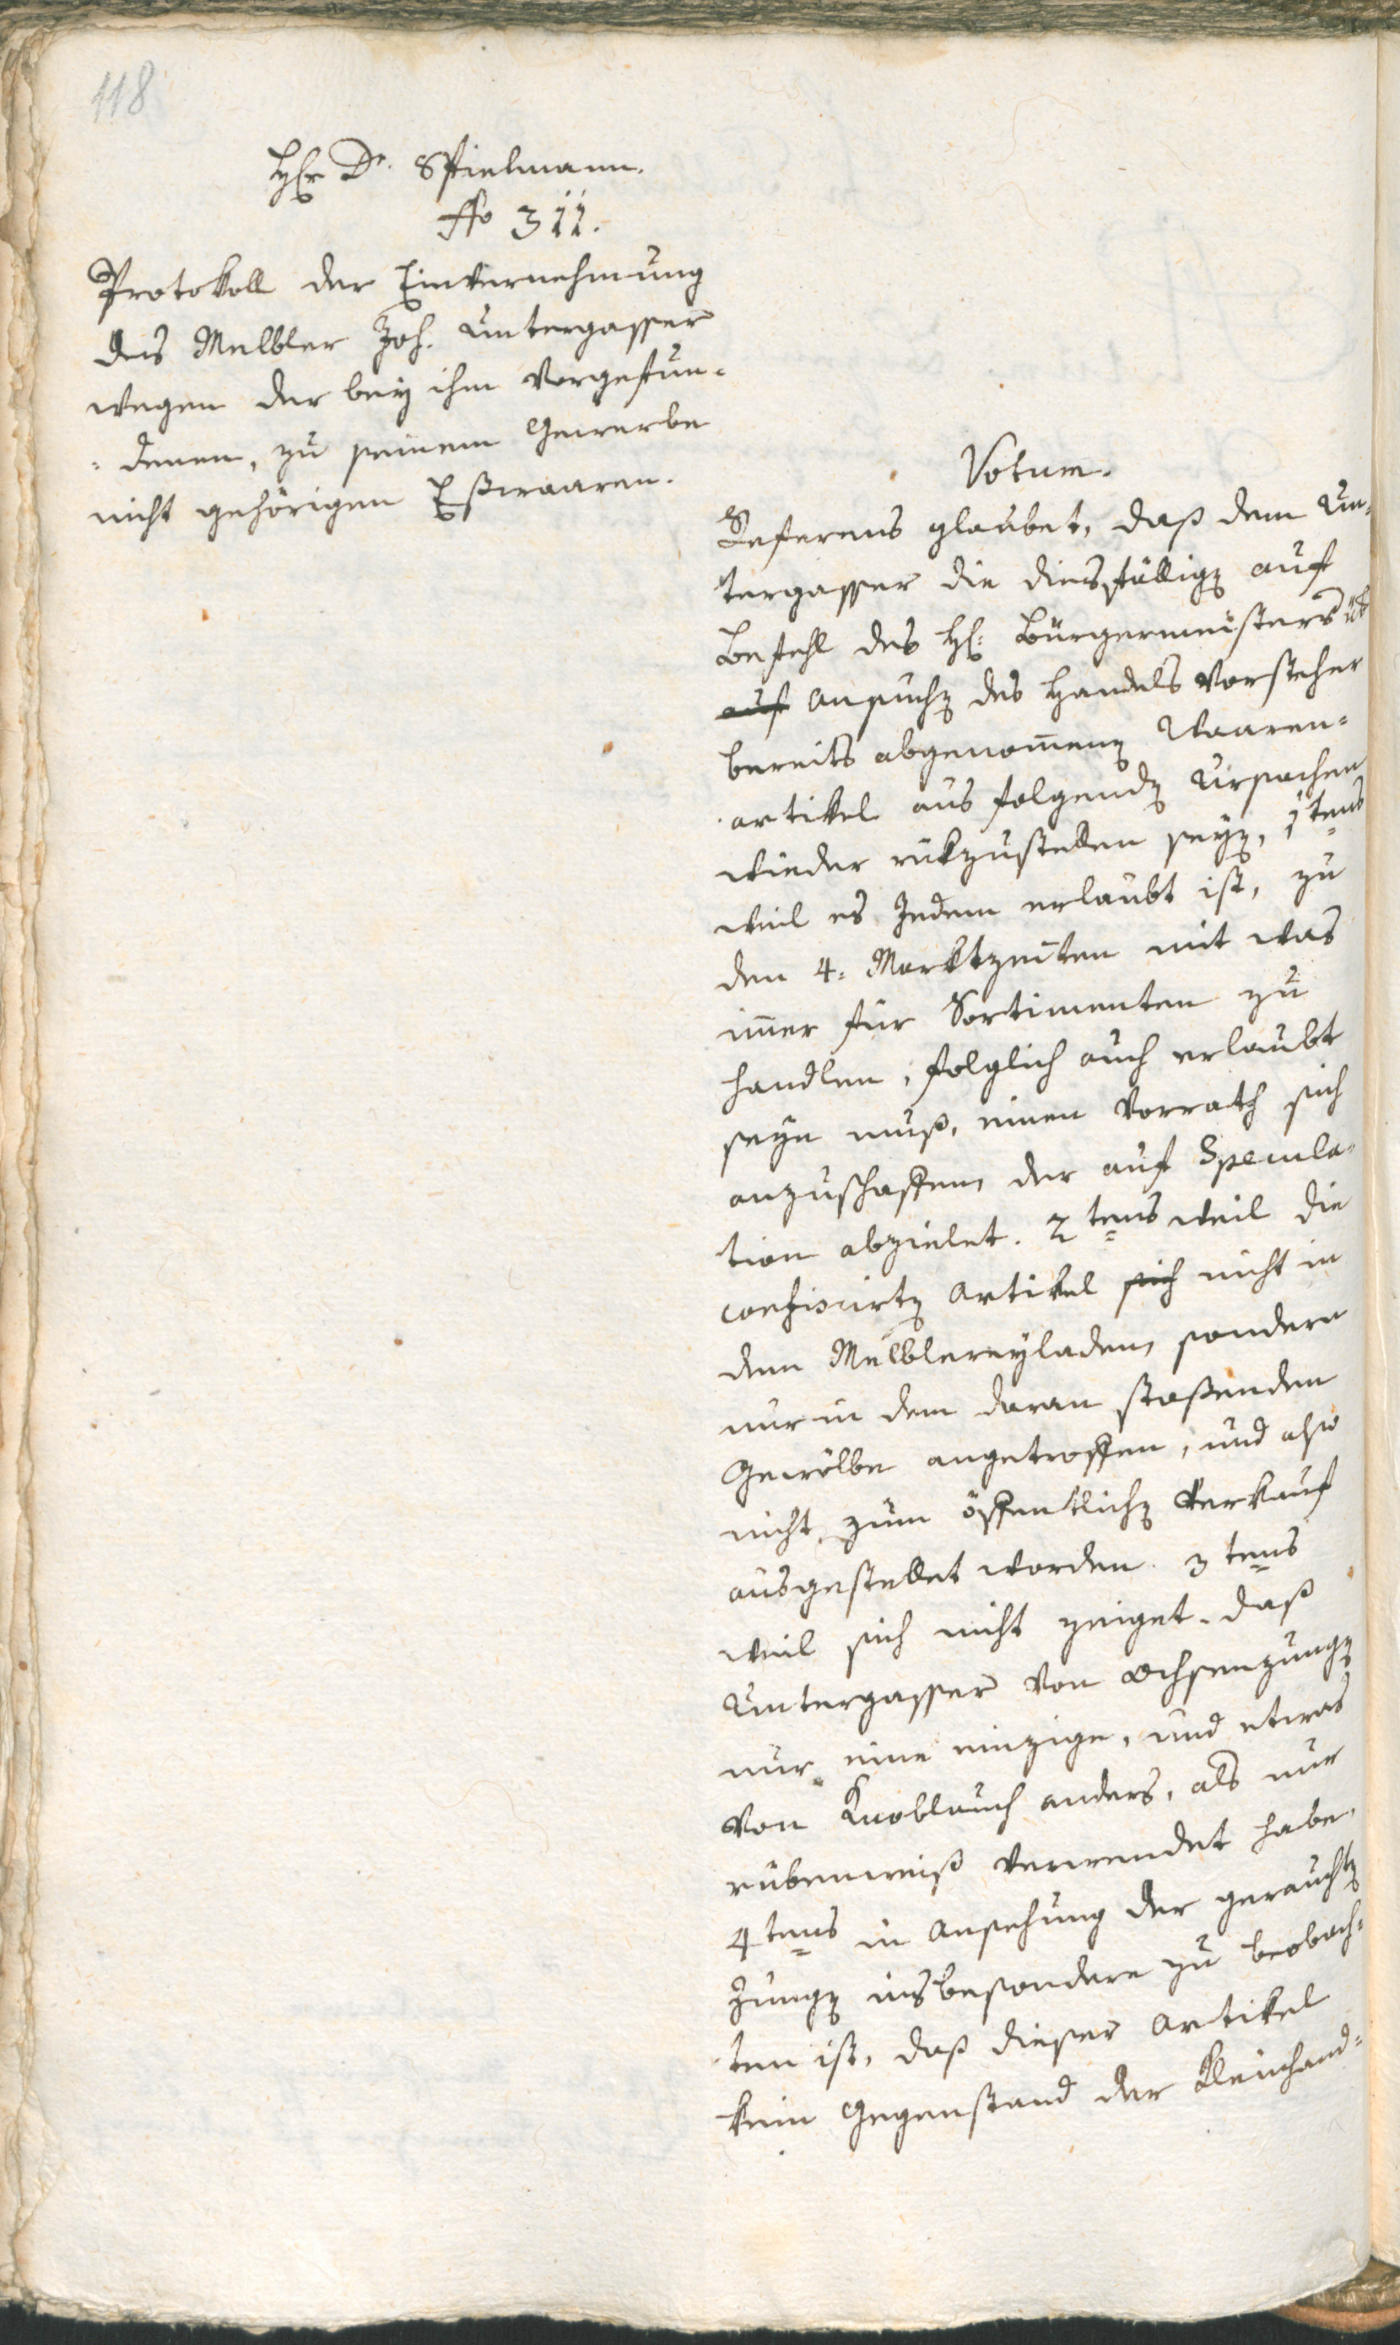 118
Herr Dr. Spielmann.
No 311.
Protokoll der Einvernehmung
des Melbler Joh. Untergasser
wegen der bey ihm vorgefun-
=denen, zu seinem Gewerbe
nicht gehörigen Eßwaaren.
Votum.
Referens glaubet, daß dem Un-
tergasser die diesfällig auf
Befehl des H: Bürgermeisters üb
auf Ansuchen des Handels Vorsteher
bereits abgenommen Waaren-
artikel aus folgenden Ursachen
wieder rükzustellen seyen, 1tens
weil es Jedem erlaubt ist, zu
den 4. Marktzeiten mit was
immer für Sortimenten zu
handlen, folglich auch erlaubt
seyn muß, einen Vorrath sich
anzuschaffen, der auf Specula-
tion abzielet. 2tens weil die
confiscirten Artikel sich nicht in
dem Melblereyladen, sondern
nur in dem daran stoßenden
Gewölbe angetroffen, und also
nicht zum öffentlichen Verkauf
ausgestellet worden. 3tens
weil sich nicht zeiget, daß
Untergasser von Ochsenzungen
nur eine einzige, und etwas
von Knoblauch anders, als nur
rübenweiß verwendet habe,
4tens in Ansehung der geräuchten
Zungen insbesondere zu beobach-
ten ist, daß dieser Artikel
kein Gegenstand der Kleinhand-